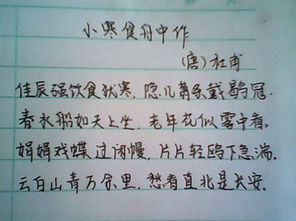 小寒食舟中作
(唐)杜甫
佳辰强饮食犹寒,隐几萧条戴鹖冠.
春水船如天上坐,老年花似雾中看.
娟娟戏蝶过闲幔,片片轻鸥下急湍.
云白山青万余里,愁看直北是长安.